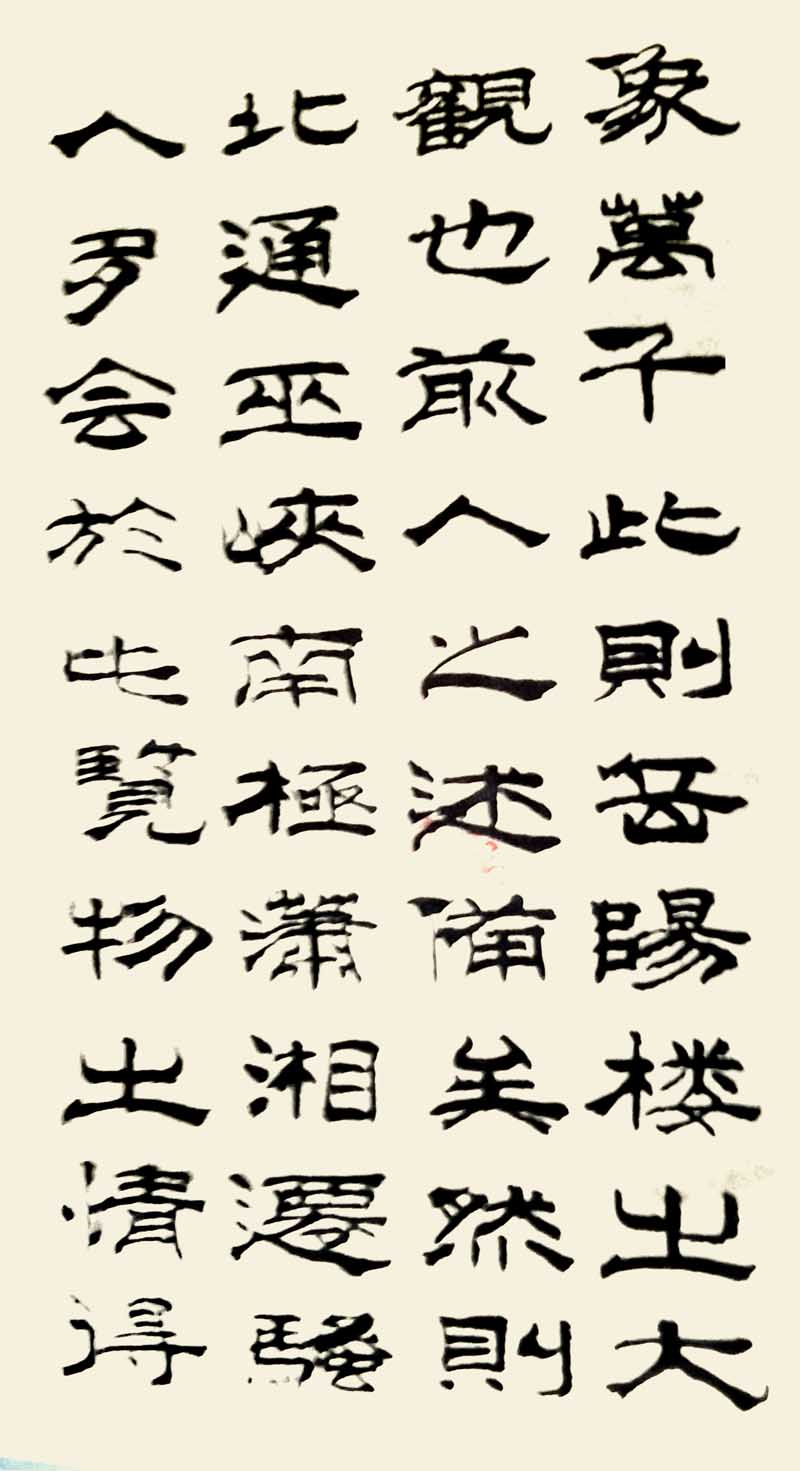 象萬千此則岳陽楼之大
觀也前人之述備矣然則
北通巫峽南極瀟湘遷騷
人多会於此覽物之情得